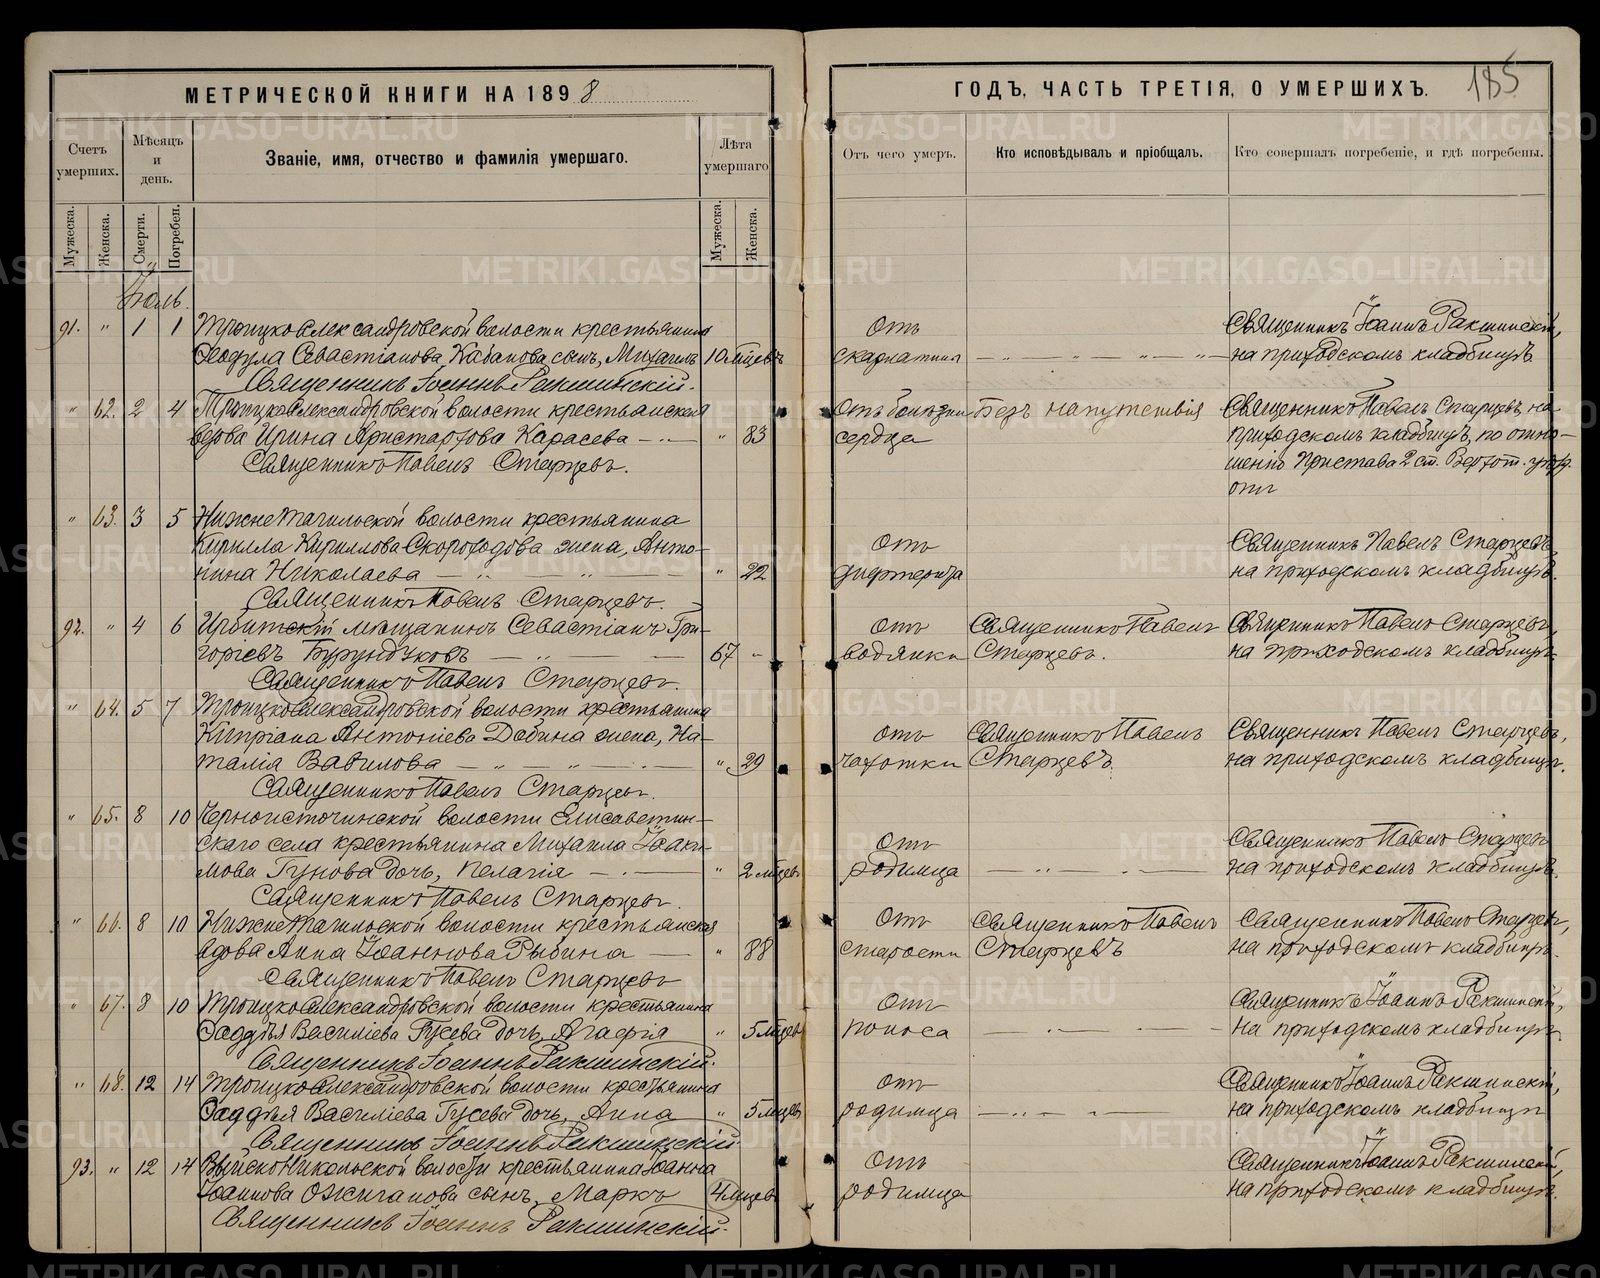 МЕТРИЧЕСКОЙ КНИГИ НА 1898
ГОДЪ, ЧАСТЬ ТРЕТІЯ, О УМЕРШИХЪ.
185
Счетъ умерших.
Мѣсяцъ и день.
Званіе, имя, отчество и фамилія умершаго.
Лѣта умершаго
Отъ чего умеръ.
Кто исповѣдывалъ и пріобщалъ.
Кто совершалъ погребеніе, и гдѣ погребены.
Мужеска.
Женска.
Смерти.
Погребен.
Мужеска.
Женска.
Іюль.
91. " 1 1 Троицкоалександровской волости крестьянина
Ѳеодула Севастіанова Кабанова сынъ, Михаилъ 10 мѣцевъ
Священникъ Іоаннъ Ракшинскій.
Отъ
скарлатины — " — " — " — " —
Священникъ Іоаннъ Ракшинскій,
на приходскомъ кладбищѣ
" 62. 2 4 Троицкоалександровской волости крестьянская
вдова Ирина Аристархова Карасева — " — " 83
Священникъ Павелъ Старцевъ.
Отъ болѣзни
сердца
Безъ напутствія
Священникъ Павелъ Старцевъ, на
приходскомъ кладбищѣ, по отно-
шенію Пристава 2 ст. Верхот. уѣзд.
" 63. 3 5 Нижнетагильской волости крестьянина
Кирилла Кириллова Скороходова жена, Анто-
нина Николаева — " — " — " 22
Священникъ Павелъ Старцевъ.
Отъ
дифтерита
Священникъ Павелъ Старцевъ
на приходскомъ кладбищѣ.
92. " 4 6 Ирбитскій мѣщанинъ Севастіанъ Гри-
горіевъ Бурундуковъ — " — — 67 "
Священникъ Павелъ Старцевъ.
Отъ
водянки
Священникъ Павелъ
Старцевъ.
Священникъ Павелъ Старцевъ,
на приходскомъ кладбищѣ
" 64. 5 7 Троицкоалександровской волости крестьянина
Кипріана Антоніева Дабина жена, На-
талія Вавилова — " — " — " — " 29
Священникъ Павелъ Старцевъ.
Отъ
чахотки
Священникъ Павелъ
Старцевъ
Священникъ Павелъ Старцевъ,
на приходскомъ кладбищѣ.
" 65. 8 10 Черноисточинской волости Елисаветин-
скаго села крестьянина Михаила Іоаки-
мова Гунова дочь, Пелагія — " — " 2 мѣцев
Священникъ Павелъ Старцевъ.
Отъ
родимца — " — " —
Священникъ Павелъ Старцевъ
на приходскомъ кладбищѣ.
" 66. 8 10 Нижнетагильской волости крестьянская
вдова Анна Іоаннова Рыбина — " 88
Священникъ Павелъ Старцевъ
Отъ
старости
Священникъ Павелъ
Старцевъ
Священникъ Павелъ Старцевъ,
на приходскомъ кладбищѣ.
" 67. 8 10 Троицкоалександровской волости крестьянина
Ѳаддѣя Василіева Гусева дочь, Агафія " 5 мѣцев
Священникъ Іоаннъ Ракшинскій.
Отъ
поноса — " — —
Священникъ Іоаннъ Ракшинскій,
на приходскомъ кладбищѣ
" 68. 12 14 Троицкоалександровской волости крестьянина
Ѳаддѣя Василіева Гусева дочь, Анна " 5 мѣцев
Священникъ Іоаннъ Ракшинскій
Отъ
родимца — " — " —
Священникъ Іоаннъ Ракшинскій,
на приходскомъ кладбищѣ
93. " 12 14 Выйско Никольской волости крестьянина Іоанна
Іоаннова Ожиганова сынъ, Маркъ 4 мѣцев
Священникъ Іоаннъ Ракшинскій.
Отъ
родимца
Священникъ Іоаннъ Ракшинскій,
на приходскомъ кладбищѣ.
METRIKI.GASO-URAL.RU